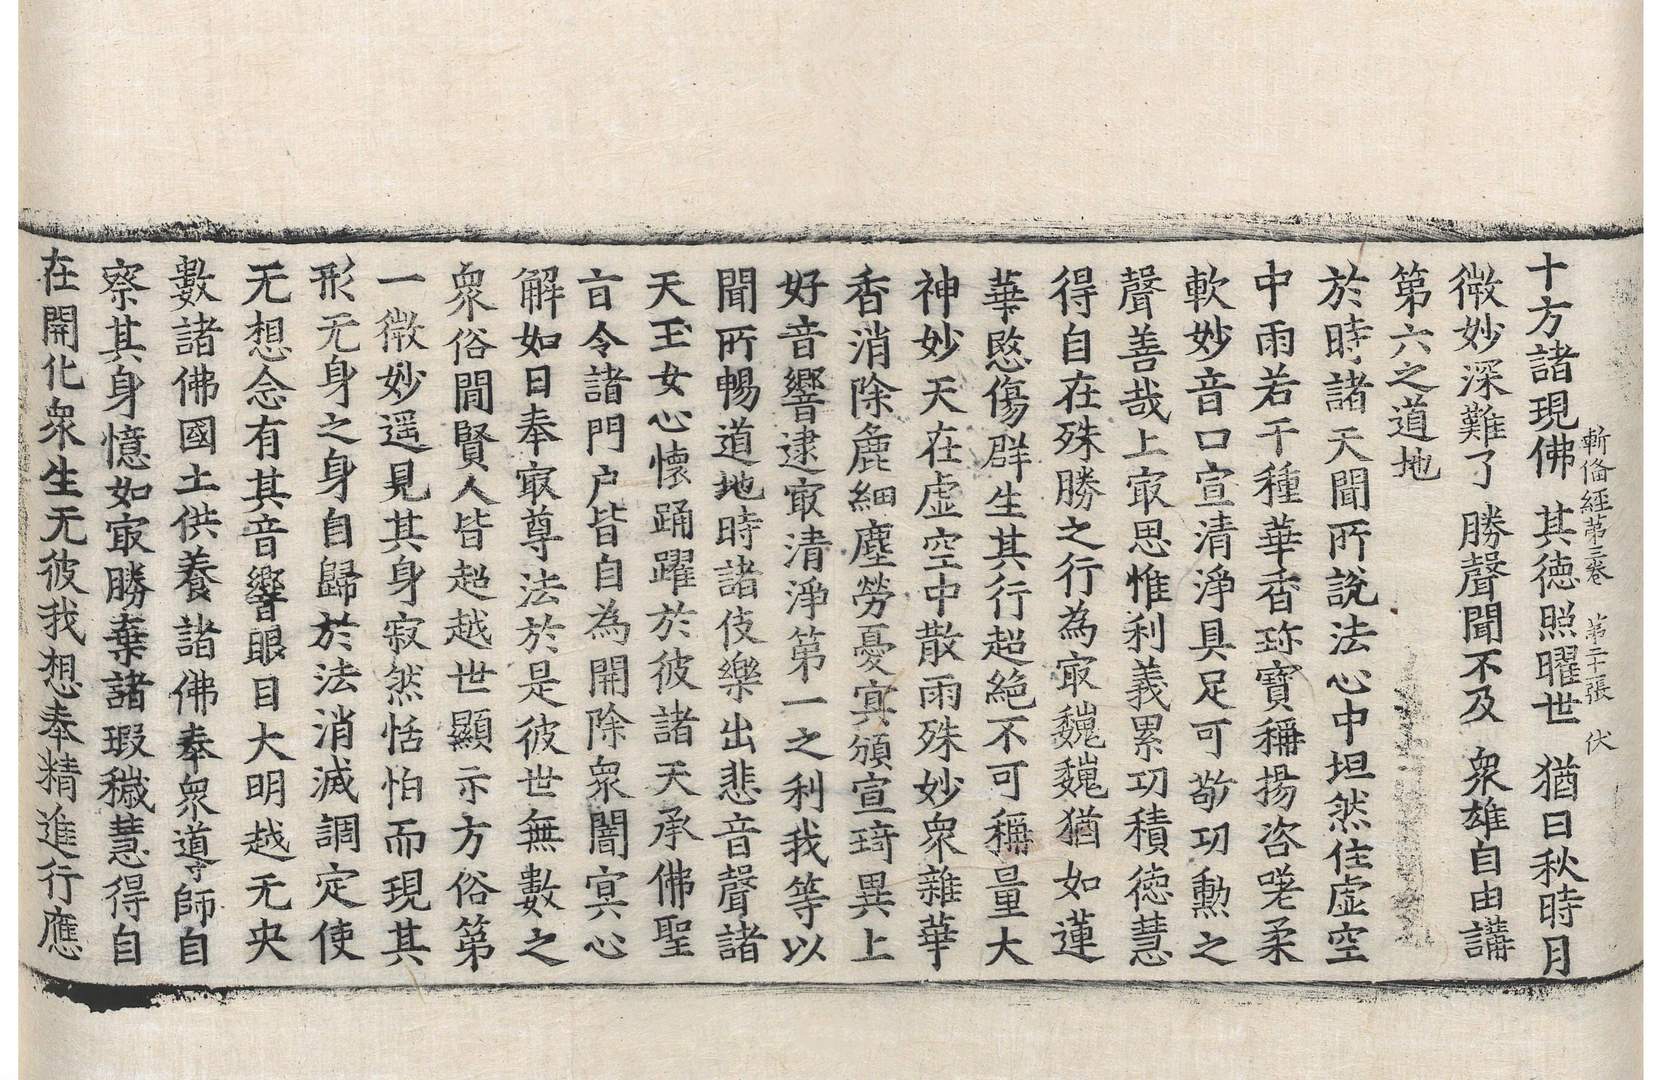 漸備經第三卷　第二十張　伏
十方諸現佛　其德照曜世　猶日秋時月
微妙深難了　勝聲聞不及　衆雄自由講
第六之道地
於時諸天聞所說法心中坦然住虛空
中雨若干種華香珎寶稱揚咨嗟柔
軟妙音口宣清淨具足可敬功勲之
聲善哉上㝡思惟利義累功積德慧
得自在殊勝之行為㝡巍巍猶如蓮
華愍傷群生其行超絕不可稱量大
神妙天在虛空中散雨殊妙衆雜華
香消除麁細塵勞憂冥頒宣琦異上
好音響逮㝡清淨第一之利我等以
聞所暢道地時諸伎樂出悲音聲諸
天玉女心懷踊躍於彼諸天承佛聖
言令諸門户皆自為開除衆闇冥心
解如日奉㝡尊法於是彼世無數之
衆俗閒賢人皆超越世顯示方俗第
一微妙遥見其身寂然恬怕而現其
形无身之身自歸於法消滅調定使
无想念有其音響眼目大明越无央
數諸佛國土供養諸佛奉衆導師自
察其身憶如㝡勝棄諸瑕穢慧得自
在開化衆生无彼我想奉精進行應